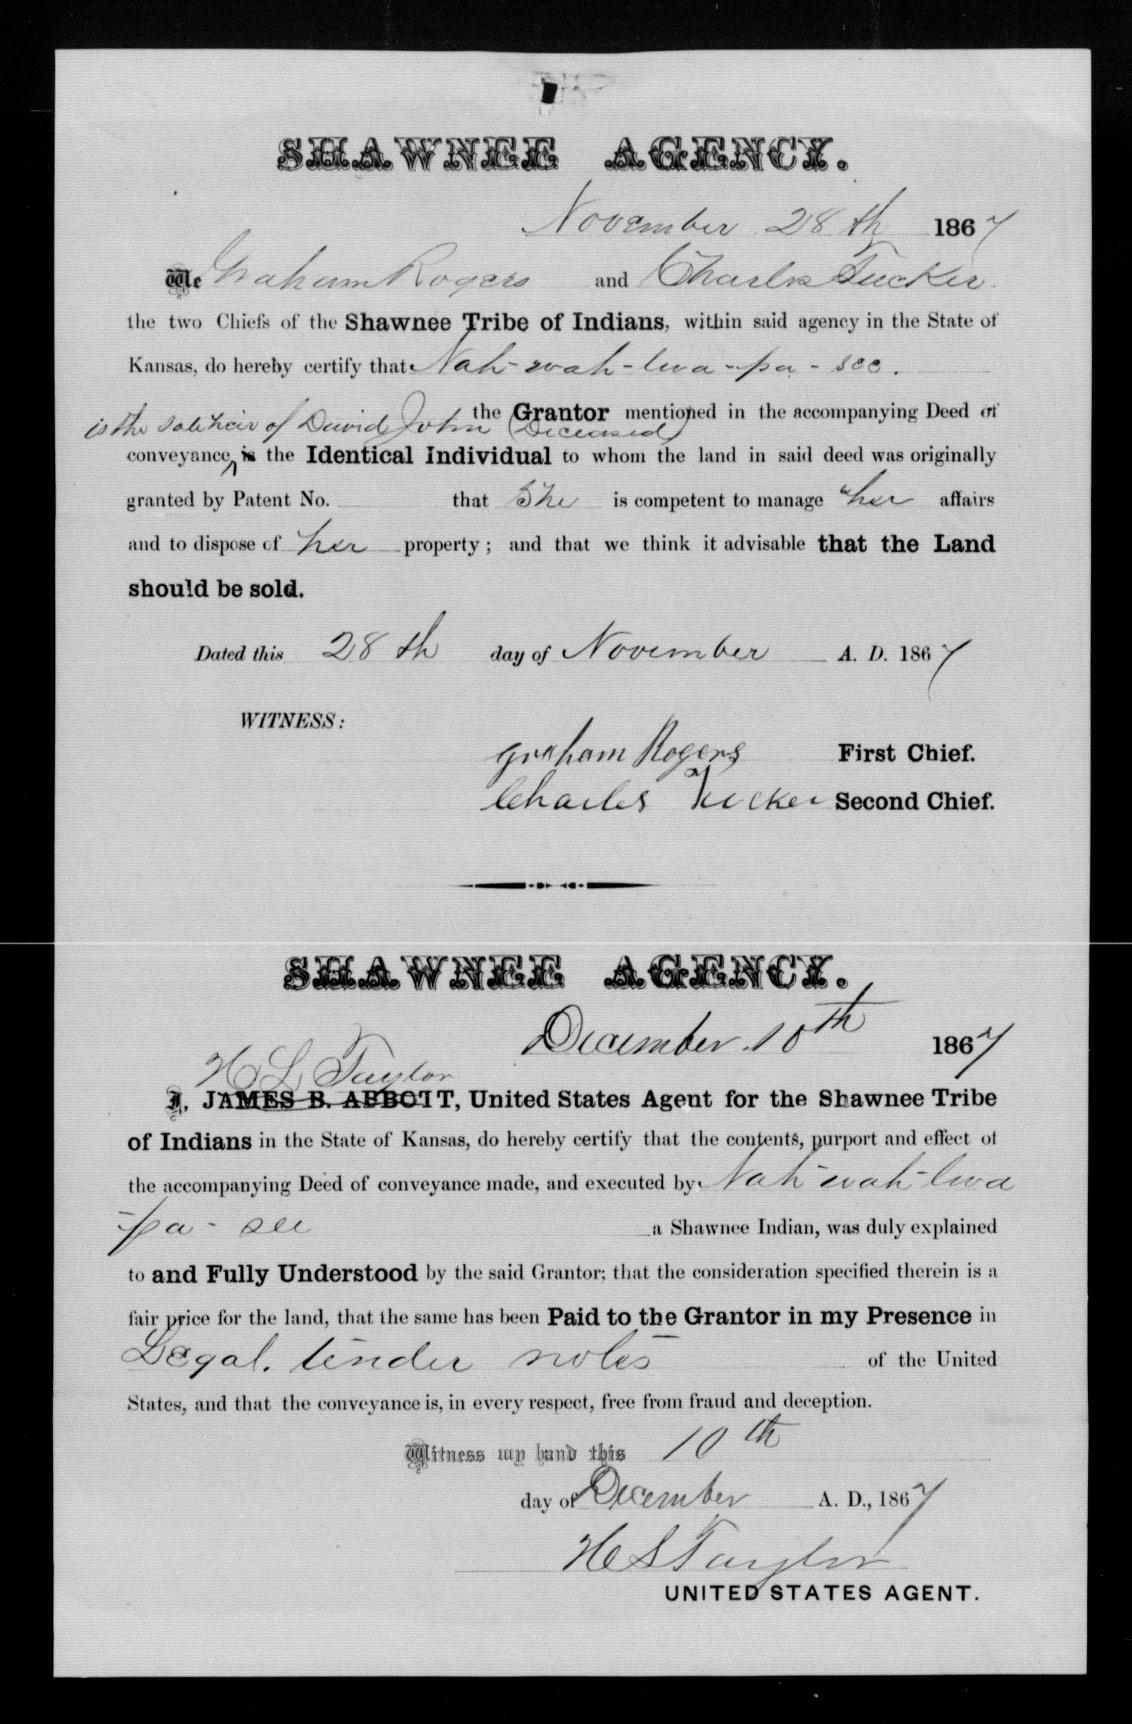 SHAWNEE AGENCY.
November 28th 1867
We Graham Rogers and Charles Tucker
the two Chiefs of the Shawnee Tribe of Indians, within said agency in the State of
Kansas, do hereby certify that Nah-wah-lwa-pa-see.
the Grantor mentioned in the accompanying Deed of
is the sole heir of David John (Deceased)
conveyance, is the Identical Individual to whom the land in said deed was originally
granted by Patent No. that She is competent to manage her affairs
and to dispose of her property; and that we think it advisable that the Land
should be sold.
Dated this 28th day of November A. D. 1867
WITNESS:
Graham Rogers First Chief.
Charles Tucker Second Chief.
SHAWNEE AGENCY.
December 10th 1867
H L Taylor
I, JAMES B. ABBOTT, United States Agent for the Shawnee Tribe
of Indians in the State of Kansas, do hereby certify that the contents, purport and effect of
the accompanying Deed of conveyance made, and executed by Nah-wah-lwa
-pa-see a Shawnee Indian, was duly explained
to and Fully Understood by the said Grantor; that the consideration specified therein is a
fair price for the land, that the same has been Paid to the Grantor in my Presence in
Legal. tender notes of the United
States, and that the conveyance is, in every respect, free from fraud and deception.
Witness my hand this 10th
day of December A. D., 1867
H S Taylor
UNITED STATES AGENT.